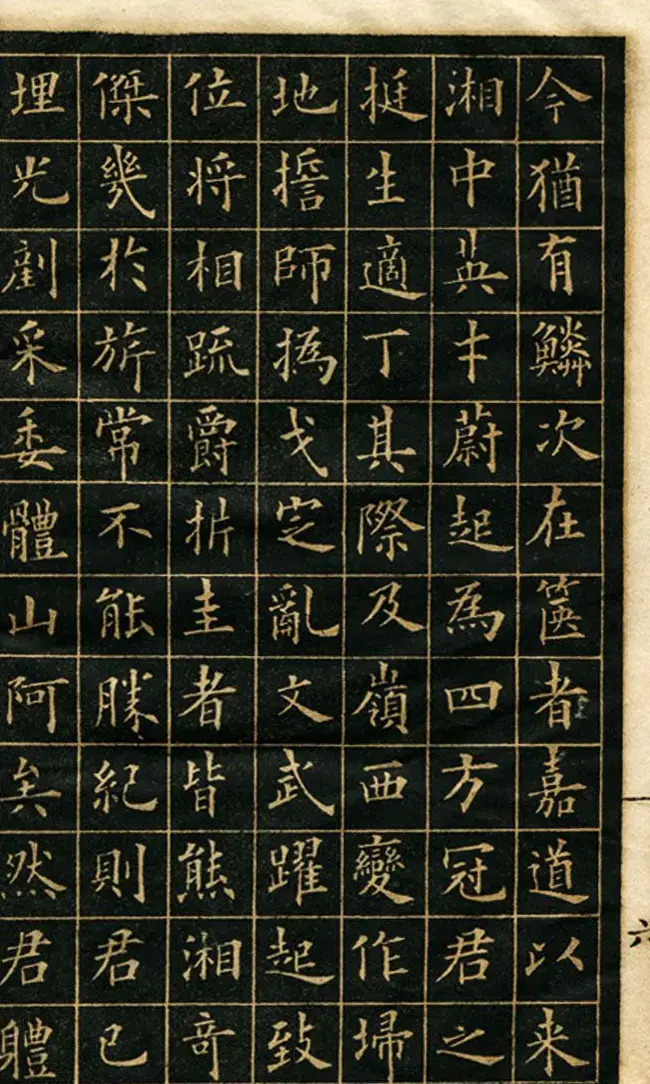 今猶有鱗次在篋者嘉道以来
湘中英才蔚起為四方冠君之
挺生適丁其際及嶺西變作埽
地誓師撝戈定亂文武躍起致
位将相疏爵析圭者皆熊湘奇
傑幾於旂常不能勝紀則君已
埋光剷采委體山阿矣然君軆
六